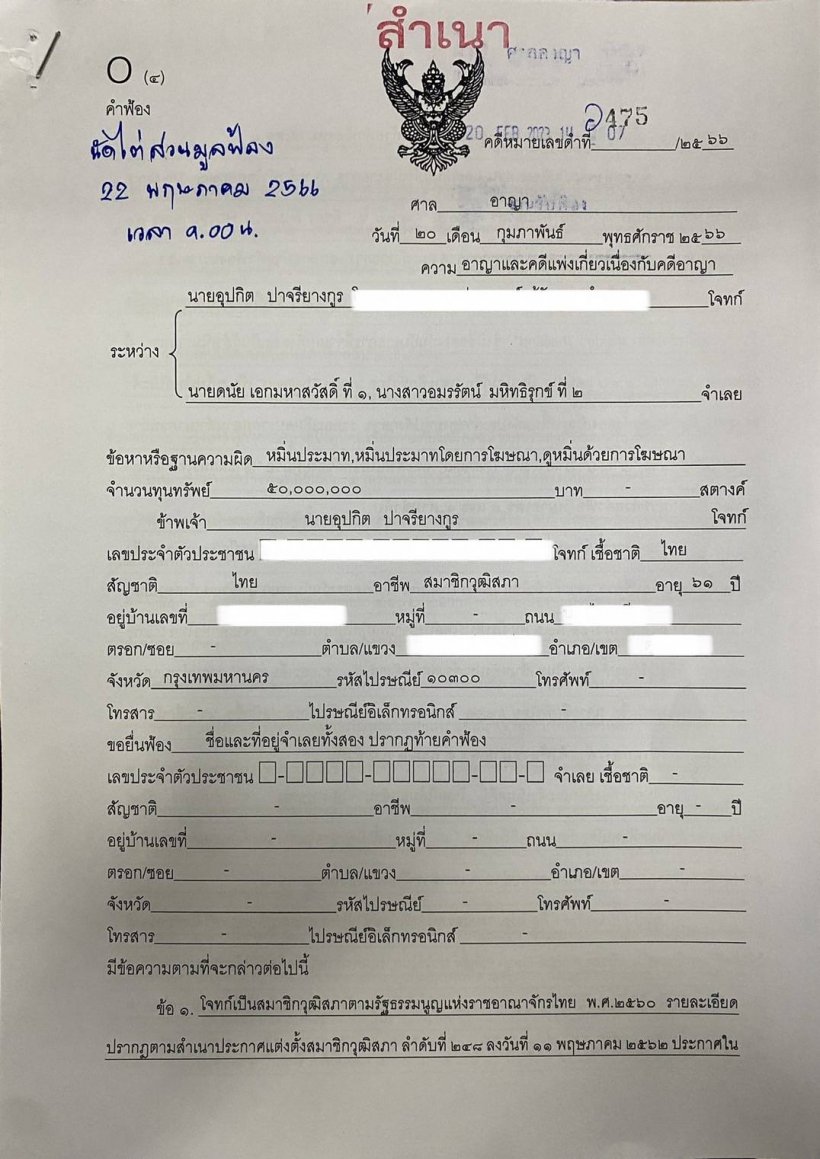 สำเนา
ศาลอาญา
O (๔)
คำฟ้อง
20 FEB 2023 14 07
475
คดีหมายเลขดำที่ /๒๕๖๖
นัดไต่สวนมูลฟ้อง
22 พฤษภาคม 2566
เวลา ๙.00 น.
ศาล อาญา
วันที่ ๒๐ เดือน กุมภาพันธ์ พุทธศักราช ๒๕๖๖
ความ อาญาและคดีแพ่งเกี่ยวเนื่องกับคดีอาญา
นายอุปกิต ปาจรียางกูร โจทก์
ระหว่าง
นายดนัย เอกมหาสวัสดิ์ ที่ ๑, นางสาวอมรรัตน์ มหิทธิรุกข์ ที่ ๒ จำเลย
ข้อหาหรือฐานความผิด หมิ่นประมาท,หมิ่นประมาทโดยการโฆษณา,ดูหมิ่นด้วยการโฆษณา
จำนวนทุนทรัพย์ ๕๐,๐๐๐,๐๐๐ บาท - สตางค์
ข้าพเจ้า นายอุปกิต ปาจรียางกูร โจทก์
เลขประจำตัวประชาชน โจทก์ เชื้อชาติ ไทย
สัญชาติ ไทย อาชีพ สมาชิกวุฒิสภา อายุ ๖๑ ปี
อยู่บ้านเลขที่ หมู่ที่ - ถนน
ตรอก/ซอย - ตำบล/แขวง อำเภอ/เขต
จังหวัด กรุงเทพมหานคร รหัสไปรษณีย์ ๑๐๓๐๐ โทรศัพท์ -
โทรสาร - ไปรษณีย์อิเล็กทรอนิกส์ -
ขอยื่นฟ้อง ชื่อและที่อยู่จำเลยทั้งสอง ปรากฏท้ายคำฟ้อง
เลขประจำตัวประชาชน จำเลย เชื้อชาติ -
สัญชาติ - อาชีพ - อายุ - ปี
อยู่บ้านเลขที่ - หมู่ที่ - ถนน -
ตรอก/ซอย - ตำบล/แขวง - อำเภอ/เขต -
จังหวัด - รหัสไปรษณีย์ - โทรศัพท์ -
โทรสาร - ไปรษณีย์อิเล็กทรอนิกส์ -
มีข้อความตามที่จะกล่าวต่อไปนี้
ข้อ ๑. โจทก์เป็นสมาชิกวุฒิสภาตามรัฐธรรมนูญแห่งราชอาณาจักรไทย พ.ศ.๒๕๖๐ รายละเอียด
ปรากฏตามสำเนาประกาศแต่งตั้งสมาชิกวุฒิสภา ลำดับที่ ๒๔๘ ลงวันที่ ๑๑ พฤษภาคม ๒๕๖๒ ประกาศใน